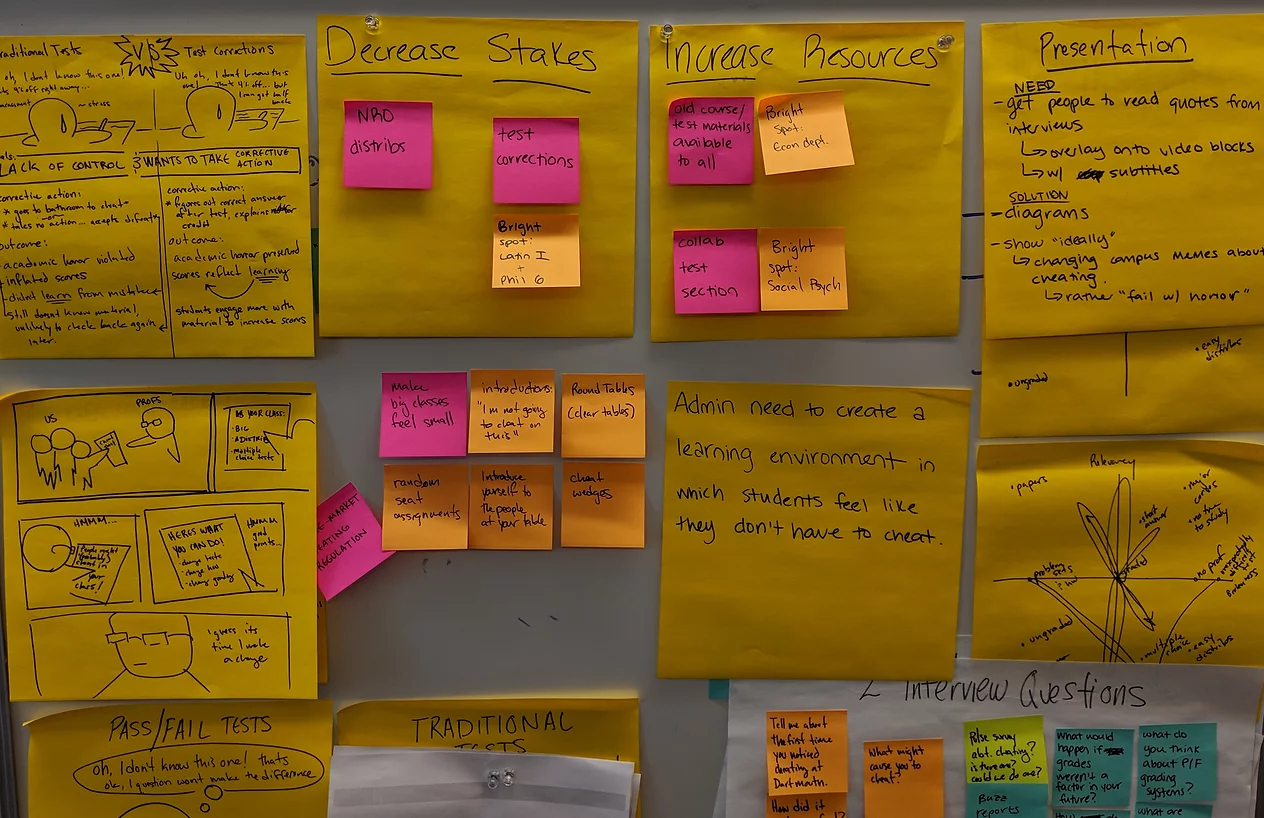 Traditional Tests
VS
Test Corrections
oh, I dont know this one!
4% off right away...
~ stress
Uh oh, I dont know this
one! That's 4% off... but
I can get half
back
LACK OF CONTROL
WANTS TO TAKE CORRECTIVE
ACTION
corrective action:
* goes to bathroom to cheat
-or-
* takes no action... accepts
outcome:
- academic honor violated
- inflated scores
- didn't learn from mistake
- still doesn't know material,
unlikely to check back again
later.
corrective action:
* figures out correct answer
after test, explains for
credit
outcome:
academic honor preserved
scores reflect learning
students engage more with
material to increase scores
Decrease Stakes
NRO
distribs
test
corrections
Bright
spot:
Latin I
+
Phil 6
Increase Resources
old course/
test materials
available
to all
Bright
Spot:
Econ dept.
collab
test
section
Bright
spot:
Social Psych
Presentation
NEED
- get people to read quotes from
interviews
↳ overlay onto video blocks
↳ w/ subtitles
SOLUTION
- diagrams
- show "ideally"
↳ changing campus memes about
cheating.
↳ rather "fail w/ honor"
• ungraded
• easy
distribs
US
PROFS
YOUR CLASS:
• BIG
• A DISTRIB
• multiple
choice tests
HMMM...
People might
cheat in
your
class!
HERES WHAT
YOU CAN DO!
- change
- change
- change grading
HMMM
good
points...
I guess its
time I make
a change
make
big classes
feel small
introductions:
"I'm not going
to cheat on
this"
Round Tables
(clear tables)
random
seat
assignments
Introduce
yourself to
the people
at your table
cheat
wedges
MARKET
REGULATION
Admin need to create a
learning environment in
which students feel like
they don't have to cheat.
Relevancy
• papers
• short
answer
• major
• no time
to study
• problem
sets
• no prof
• ungraded
• multiple
choice
• easy
distribs
PASS/FAIL TESTS
oh, I don't know this one! thats
ok, 1 question wont make the difference
TRADITIONAL
TESTS
Interview Questions
Tell me about
the first time
you noticed
cheating at
Dartmouth.
How did it
What might
cause you to
cheat?
Pulse survey
abt. cheating?
is there one?
could we do one?
Buzz
reports
What would
happen if
grades
weren't a
factor in your
future?
what do
you think
about P/F
grading
systems?
what are